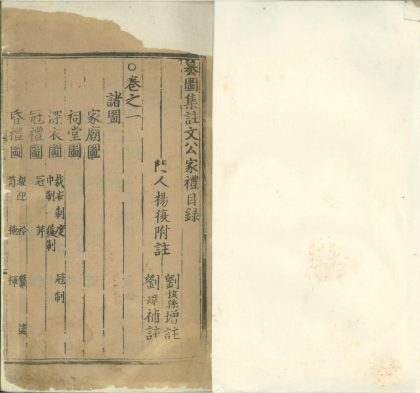 纂圖集註文公家禮目録
門人楊復附註
劉垓孫增註
劉璋補註
○卷之一
諸圖
家廟圖
祠堂圖
深衣圖 裁衣制度 冠制
巾制 履制
冠禮圖 冠 笄
昏禮圖 親迎